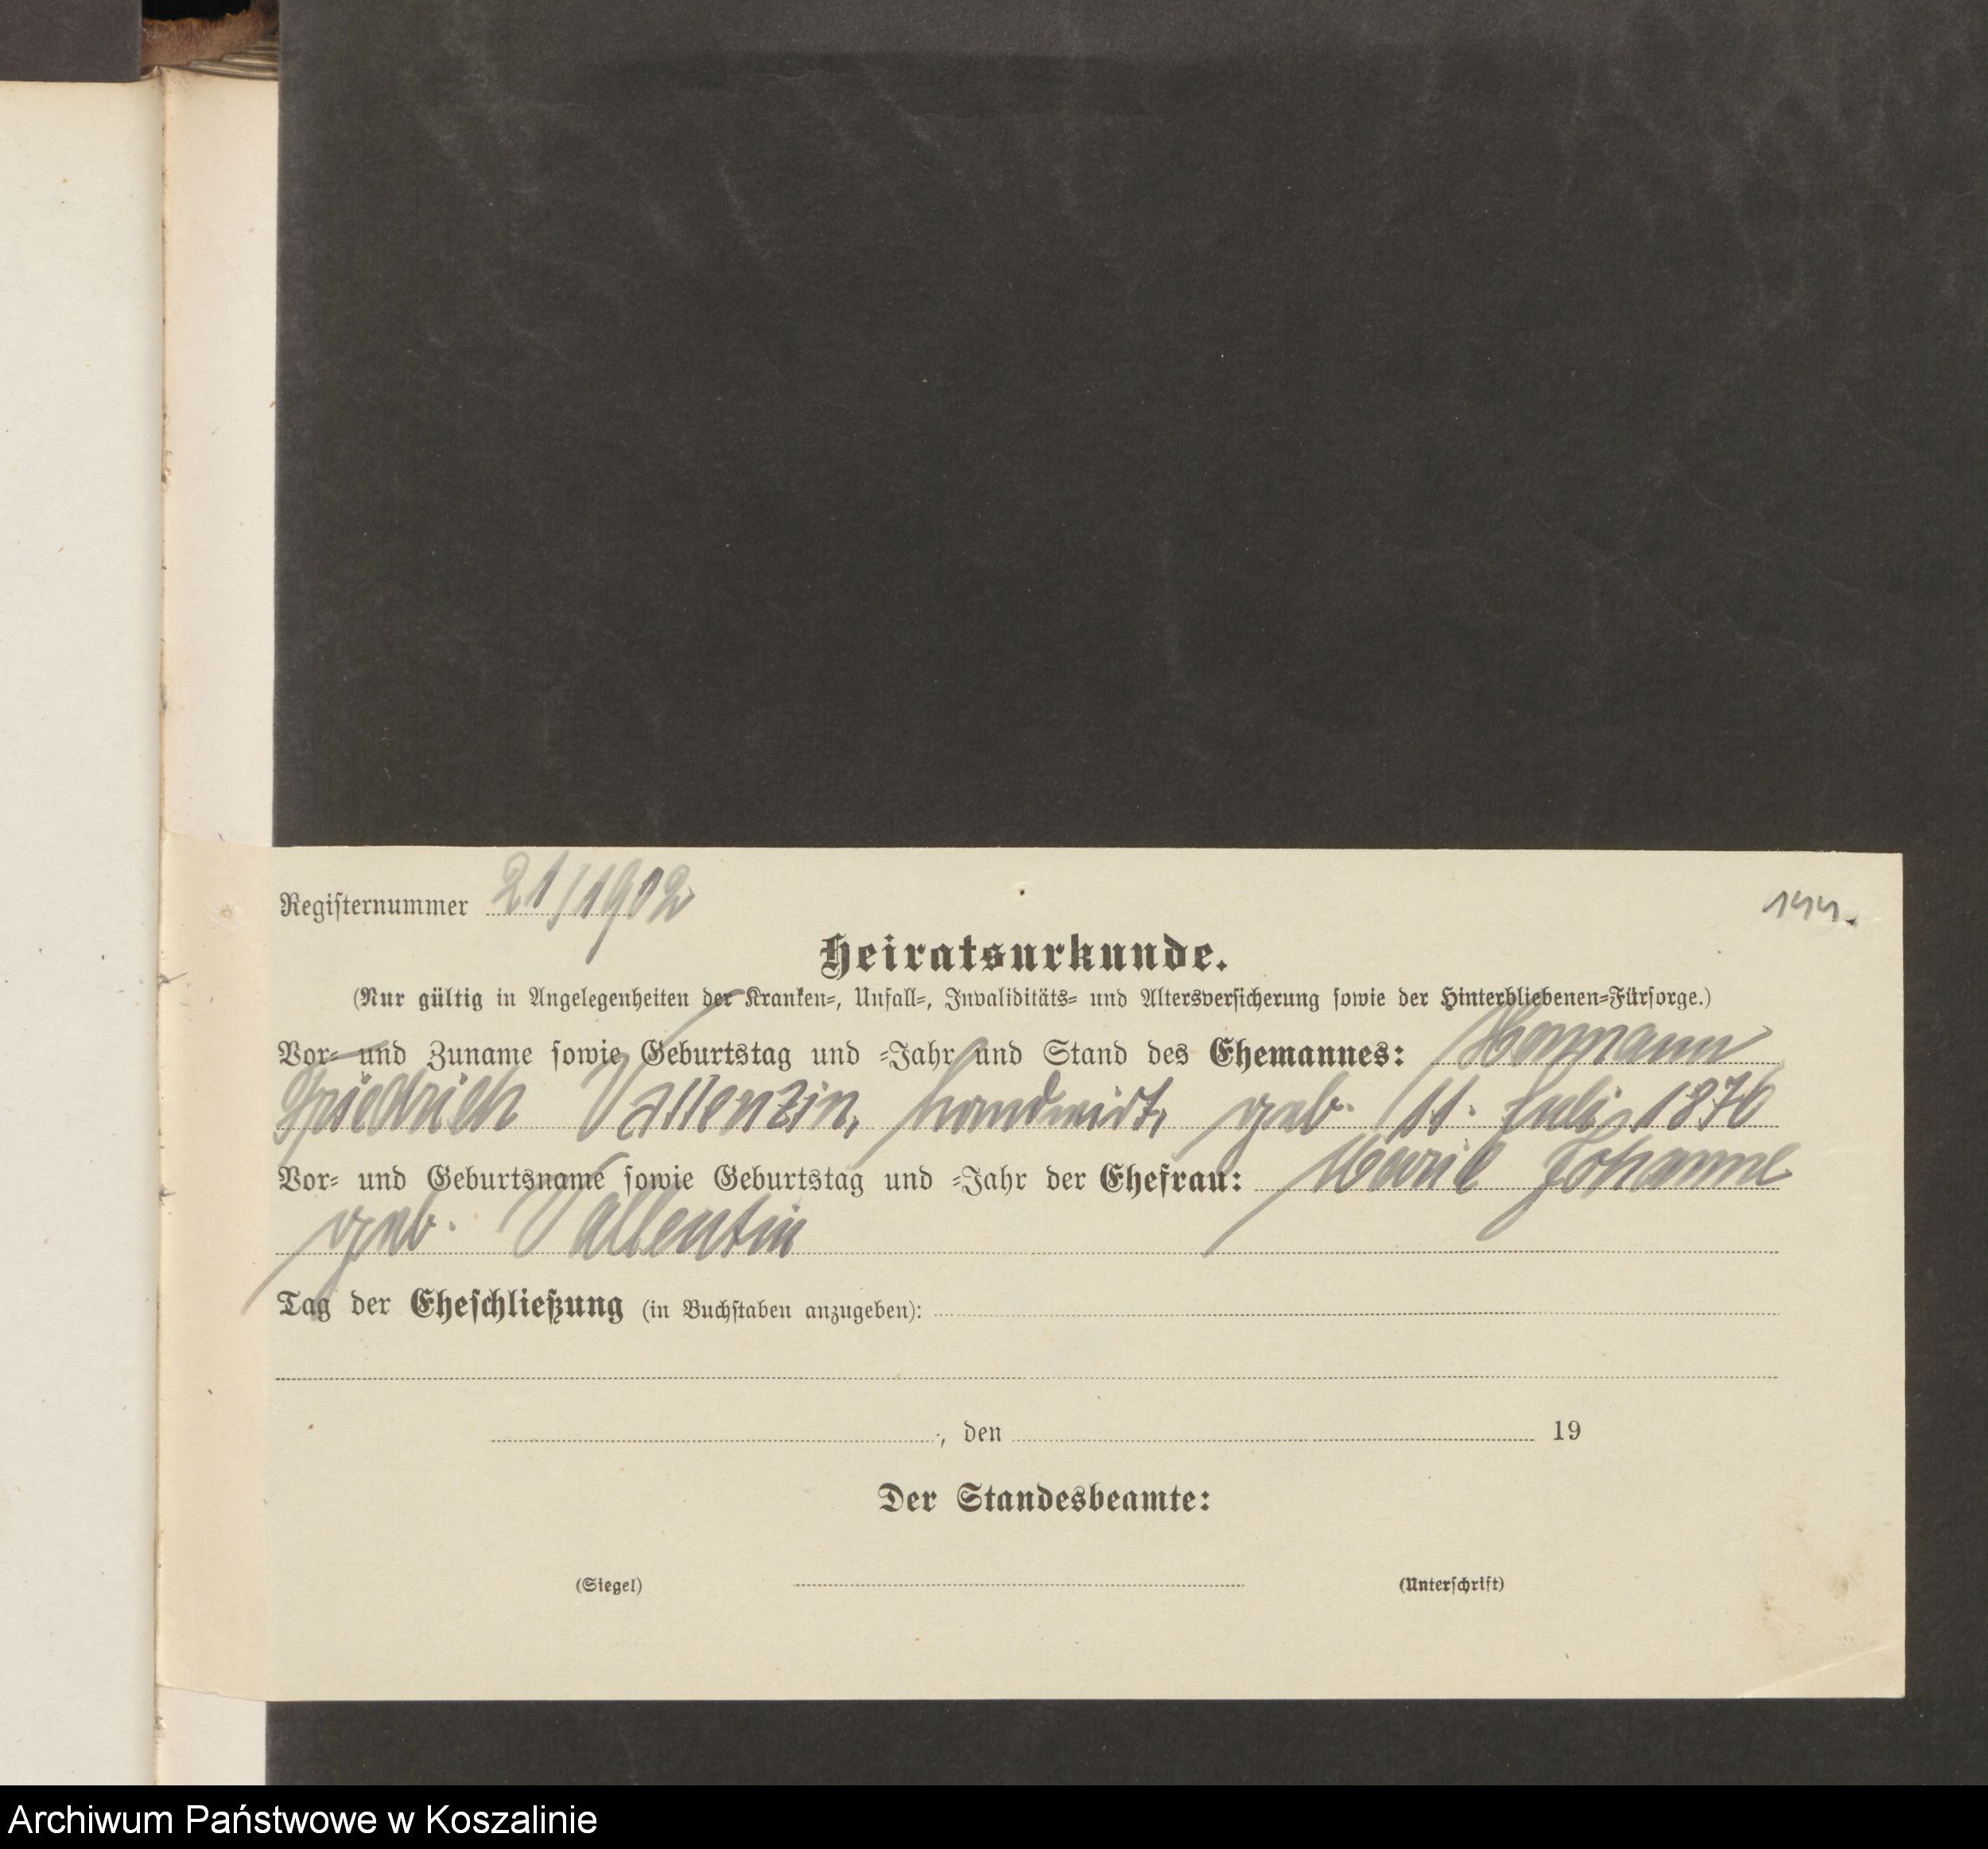 Registernummer 21/1902
144.
Heiratsurkunde.
(Nur gültig in Angelegenheiten der Kranken-, Unfall-, Invaliditäts- und Altersversicherung sowie der Hinterbliebenen-Fürsorge.)
Vor- und Zuname sowie Geburtstag und -Jahr und Stand des Ehemannes: Hermann
Friedrich Vallenzin, Landwirt, geb. 11. Juli 1876
Vor- und Geburtsname sowie Geburtstag und -Jahr der Ehefrau: Marie Johanne
geb. Vallentin
Tag der Eheschließung (in Buchstaben anzugeben):
, den 19
Der Standesbeamte:
(Siegel) (Unterschrift)
Archiwum Państwowe w Koszalinie